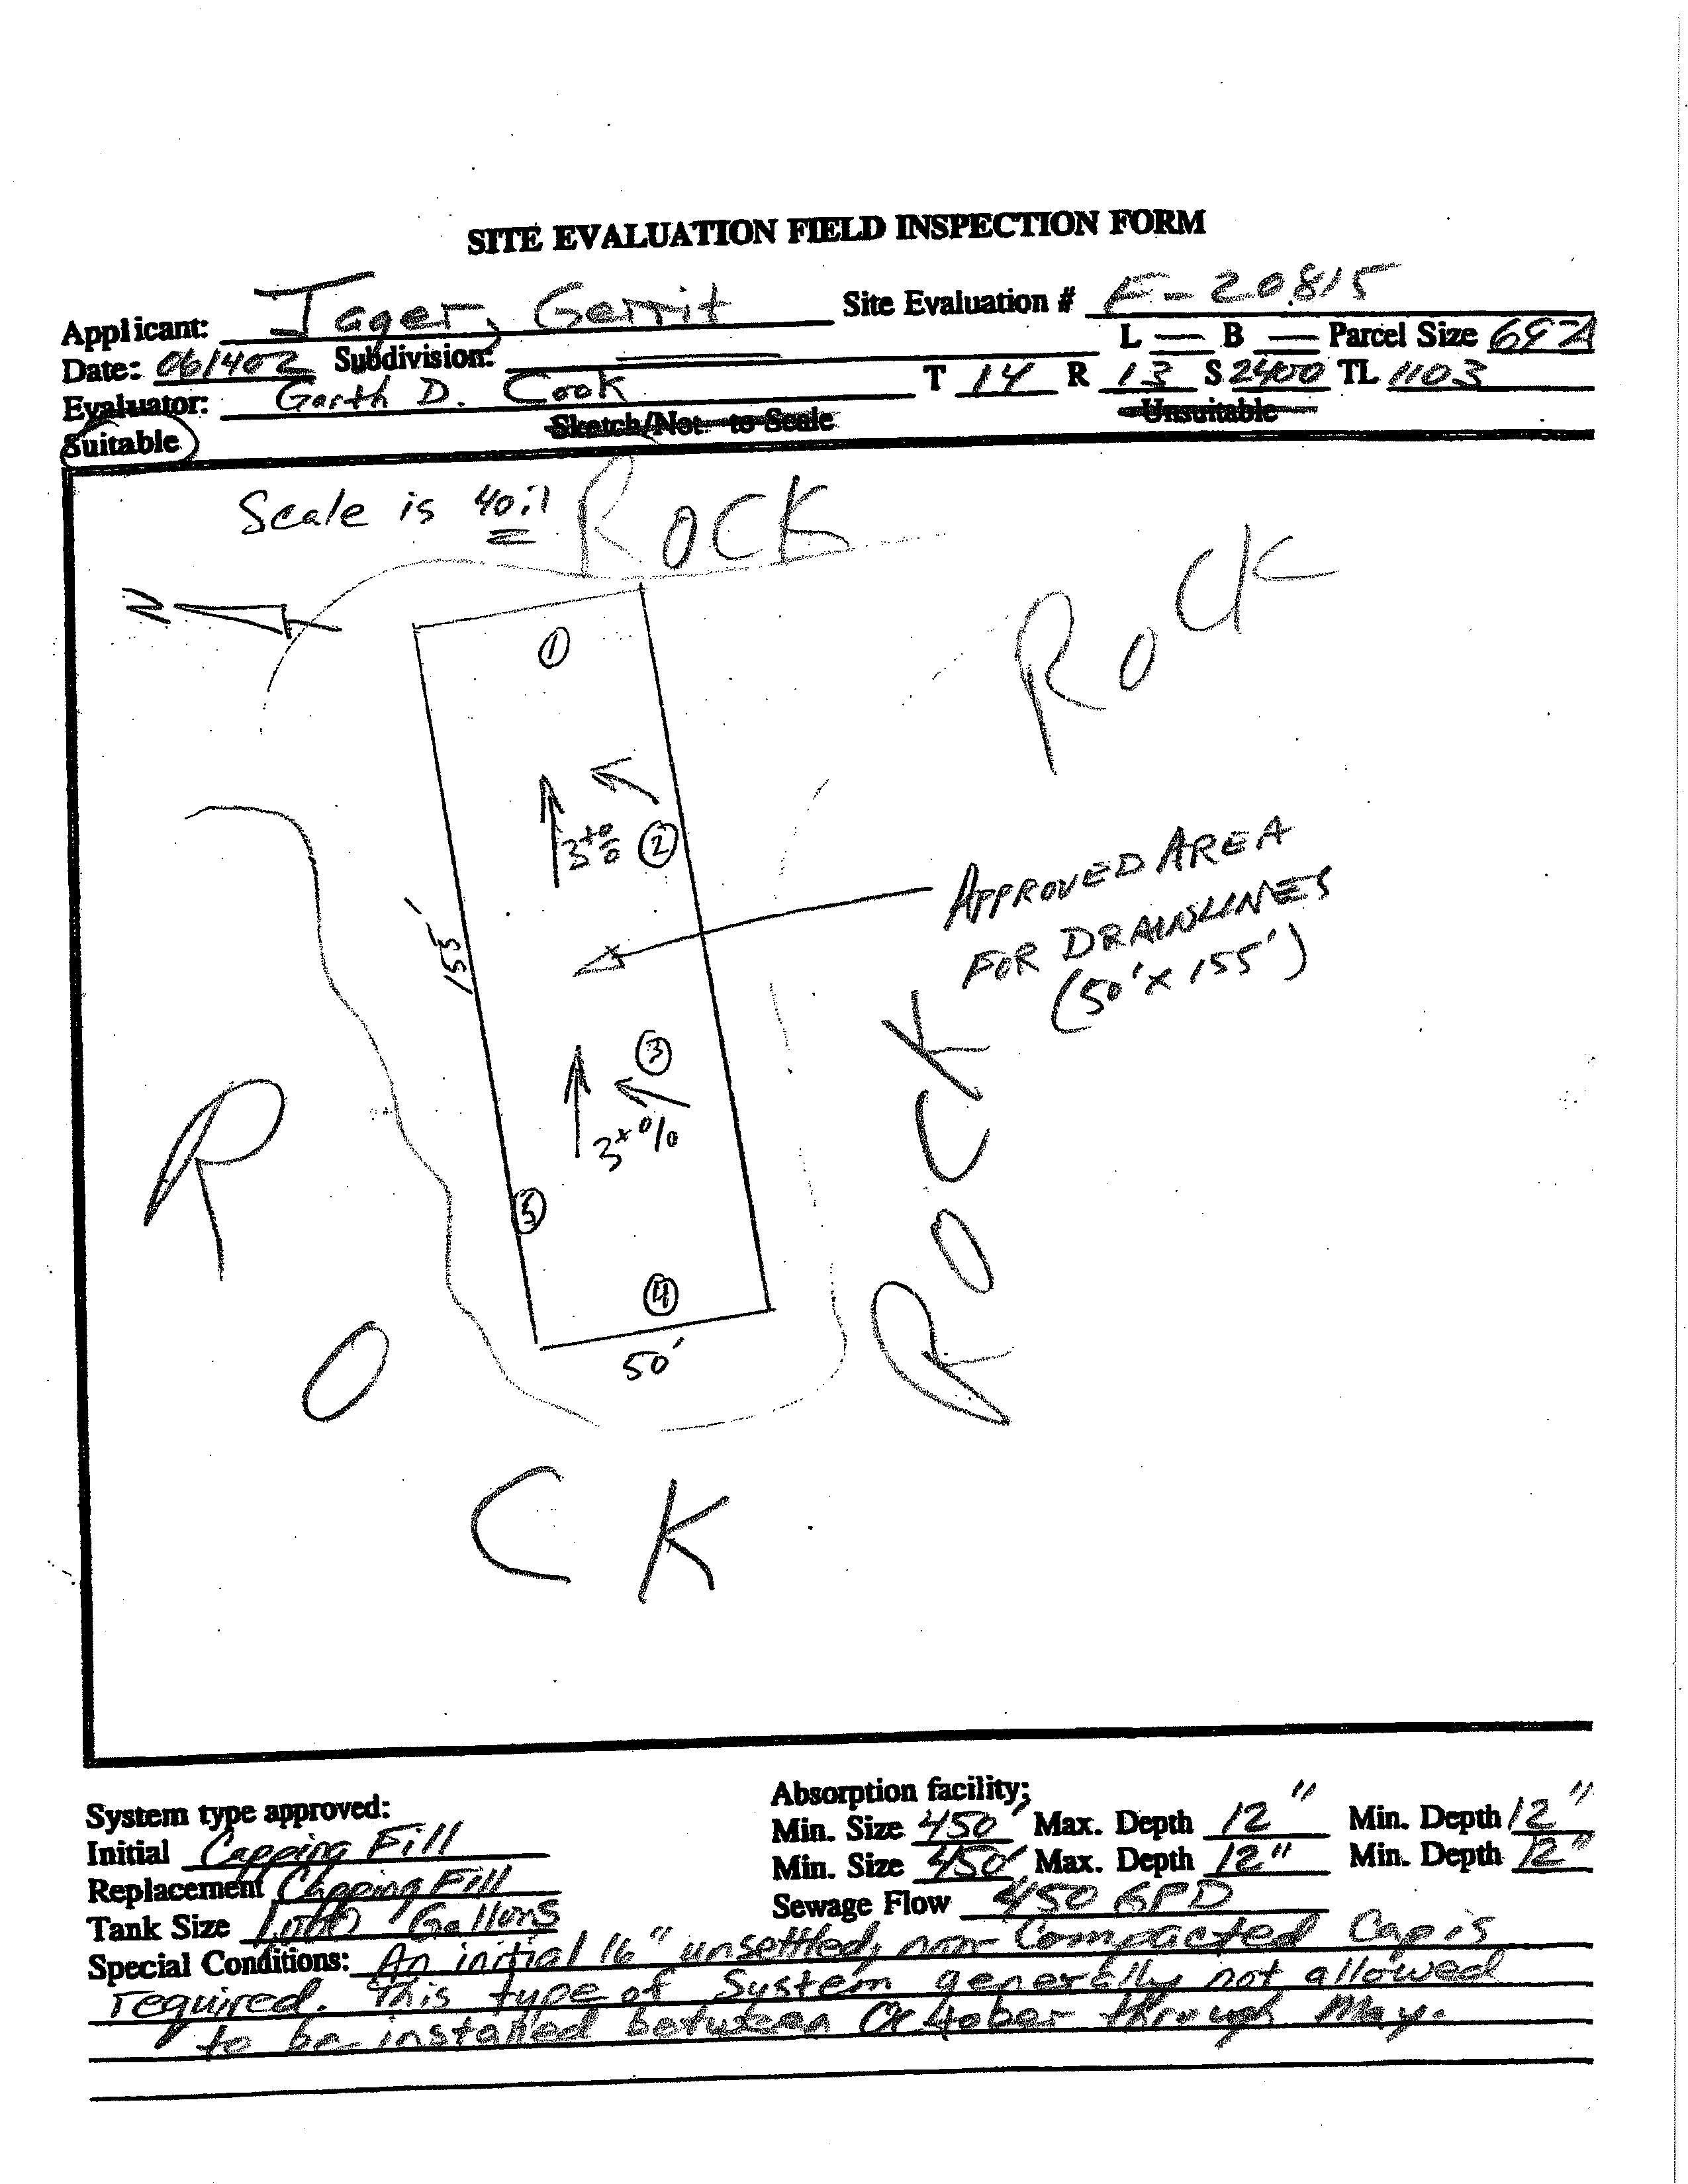 SITE EVALUATION FIELD INSPECTION FORM
Applicant: Jager, Gerrit Site Evaluation # E-20815
L — B — Parcel Size 69.2A
Date: 061402 Subdivision: —
T 14 R 13 S 2400 TL 1103
Evaluator: Garth D. Cook
Suitable Sketch/Not to Scale Unsuitable
Scale is 40:1
ROCK
ROCK
N
1
3+% 2
APPROVED AREA
FOR DRAINLINES
(50' x 155')
155'
3
3+%
ROCK
5
4
50'
ROCK
System type approved: Absorption facility;
Initial Capping Fill Min. Size 450' Max. Depth 12" Min. Depth 12"
Replacement Capping Fill Min. Size 450' Max. Depth 12" Min. Depth 12"
Tank Size 1,000 Gallons Sewage Flow 450 GPD
Special Conditions: An initial 16" unsettled, non-compacted cap is
required. This type of system generally not allowed
to be installed between October through May.